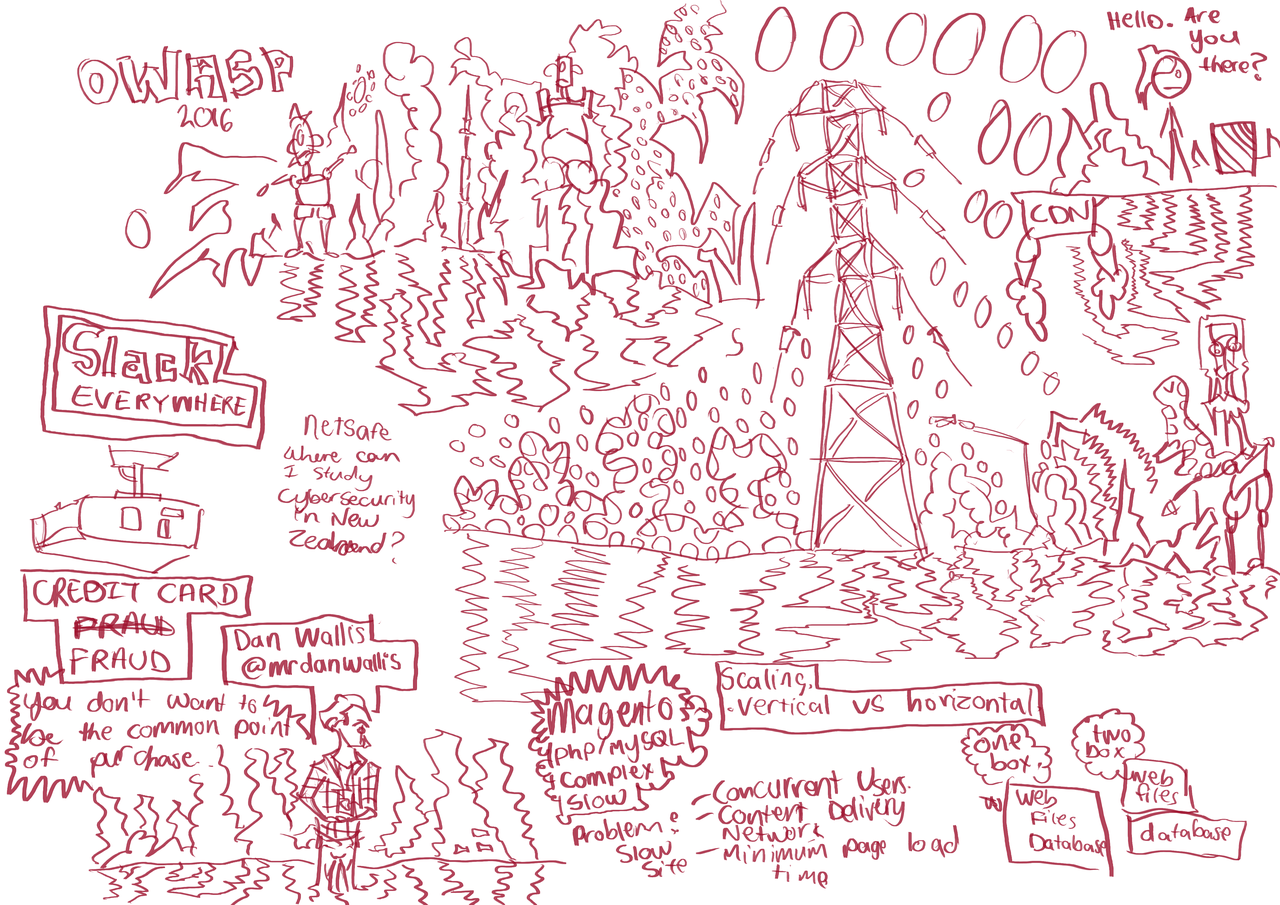 OWASP
2016
Hello. Are
you
there?
CDN
Slack
EVERYWHERE
Netsafe
where can
I study
cybersecurity
in New
Zealand?
CREDIT CARD
FRAUD
FRAUD
Dan Wallis
@mrdanwallis
You don't want to
be the common point
of purchase
Magento
php/mySQL
Complex
Slow
Problem:
Slow
Site
- Concurrent Users.
- Content Delivery
Network
- Minimum page load
time
Scaling.
.vertical vs horizontal
one
box.
Web
Files
Database
two
box
web
files
database